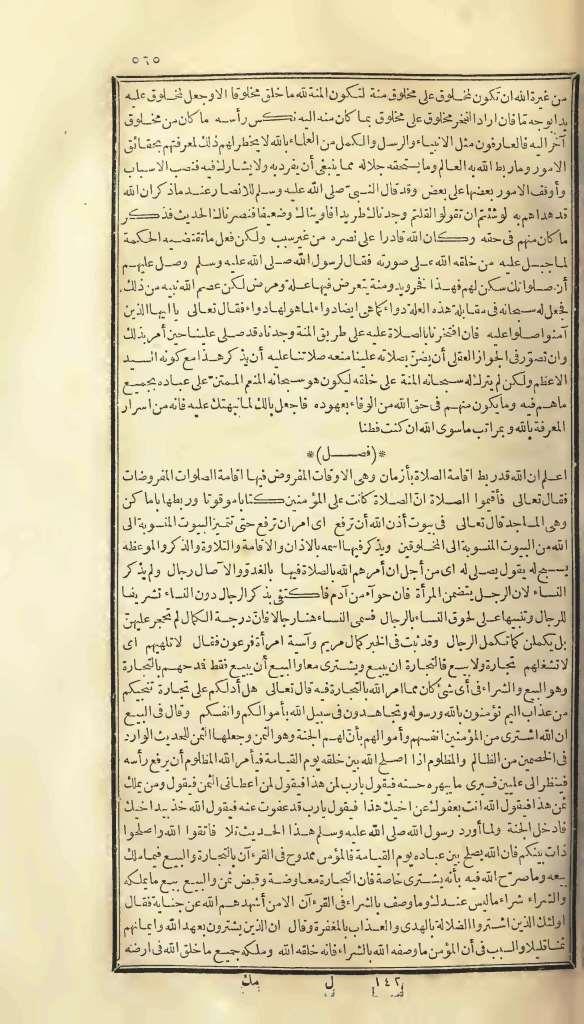 ٥٦٥
من غيرة الله ان تكون لمخلوق على مخلوق منة لتكون المنة لله ما خلق مخلوقا الا وجعل لمخلوق عليه
يدا بوجه تما فان اراد الفخر مخلوق على مخلوق بما كان منه اليه نكس رأسه ما كان من مخلوق
آخر اليه فالعارفون مثل الانبياء والرسل والكمل من العلماء بالله لا يخطر لهم ذلك لمعرفتهم بحقائق
الامور وما ربط الله به العالم وما يستحقه جلاله مما ينبغي أن يفرد به ولا يشارك فيه فنصب الاسباب
وأوقف الامور بعضها على بعض وقد قال النبي صلى الله عليه وسلم للانصار عند ما ذكر ان الله
قد هداهم به لو شئتم ان تقولوا لقلتم وجدناك طريدا فآويناك وضعيفا فنصرناك الحديث فذكر
ما كان منهم في حقه وكان الله قادرا على نصره من غير سبب ولكن فعل ما تقتضيه الحكمة
لما جبل عليه من خلقه الله على صورته فقال لرسول الله صلى الله عليه وسلم وصل عليهم
أن صلواتك سكن لهم فهذا فخر ويد ومنة يتعرض فيها علة ومرض لكن عصم الله نبيه من ذلك
فجعل له سبحانه في مقابلة هذه العلة دواء كما هي ايضا دواء لما هو لها دواء فقال تعالى يا ايها الذين
آمنوا صلوا عليه فان افتخرنا بالصلاة عليه على طريق المنة وجدناه قد صلى علينا حين أمر بذلك
وان تصور في الجواز العقلي أن يمتن بصلاته علينا منعه صلاتنا عليه أن يذكر هذا مع كونه السيد
الاعظم ولكن لم يترك له سبحانه المنة على خلقه ليكون هو سبحانه المنعم الممتن على عباده بجميع
ما هم فيه وما يكون منهم في حق الله من الوفاء بعهوده فاجعل بالك لما نبهتك عليه فانه من اسرار
المعرفة بالله وبمراتب ما سوى الله ان كنت فطنا
*(فصل)*
اعلم ان الله قد ربط اقامة الصلاة بأزمان وهي الاوقات المفروض فيها اقامة الصلوات المفروضات
فقال تعالى فأقيموا الصلاة ان الصلاة كانت على المؤمنين كتابا موقوتا وربطها باماكن
وهي المساجد قال تعالى في بيوت أذن الله أن ترفع اى امر ان ترفع حتى تتميز البيوت المنسوبة الى
الله من البيوت المنسوبة الى المخلوقين ويذكر فيها اسمه بالاذان والاقامة والتلاوة والذكر والموعظة
يسبح له يقول يصلى له اى من أجل ان أمرهم الله بالصلاة فيها بالغدو والآصال رجال ولم يذكر
النساء لان الرجل يتضمن المرأة فان حواء من آدم فاكتفى بذكر الرجال دون النساء تشريفا
للرجال وتنبيها على لحوق النساء بالرجال فسمى النساء هنا رجالا فان درجة الكمال لم تحجر عليهن
بل يكملن كما تكمل الرجال وقد ثبت في الخبر كمال مريم وآسية امرأة فرعون فقال لا تلهيهم اى
لا تشغلهم تجارة ولا بيع فالتجارة ان يبيع ويشترى معا والبيع أن يبيع فقط فدحهم بالتجارة
وهو البيع والشراء في أى شئ كان مما امر الله بالتجارة فيه قال تعالى هل أدلكم على تجارة تنجيكم
من عذاب اليم تؤمنون بالله ورسوله وتجاهدون في سبيل الله بأموالكم وانفسكم وقال في البيع
ان الله اشترى من المؤمنين انفسهم وأموالهم بأن لهم الجنة وهو الثمن وجعلها الثمن للحديث الوارد
في الخصمين من الظالم والمظلوم اذا اصلح الله بين خلقه يوم القيامة فيأمر الله المظلوم أن يرفع رأسه
فينظر الى عليين فيرى ما يبهره حسنه فيقول يا رب لمن هذا فيقول لمن أعطانى الثمن فيقول ومن يملك
ثمن هذا فيقول الله انت بعفوك عن اخيك هذا فيقول يا رب قد عفوت عنه فيقول الله خذ بيد اخيك
فادخل الجنة ولما أورد رسول الله صلى الله عليه وسلم هذا الحديث تلا فاتقوا الله واصلحوا
ذات بينكم فان الله يصلح بين عباده يوم القيامة فالمؤمن ممدوح في القرءآن بالتجارة والبيع فيما ملك
بيعه وما صرح الله فيه بأنه يشترى خاصة فان التجارة معاوضة وقبض ثمن والبيع بيع ما يملكه
والشراء شراء ما ليس عندك وما وصف بالشراء في القرءآن الا من أشهدهم الله عن جناية فقال
اولئك الذين اشتروا الضلالة بالهدى والعذاب بالمغفرة وقال ان الذين يشترون بعهد الله وايمانهم
ثمنا قليلا والسبب في أن المؤمن ما وصفه الله بالشراء فانه خلقه الله وملكه جميع ما خلق الله في ارضه
١٤٢ ل مك